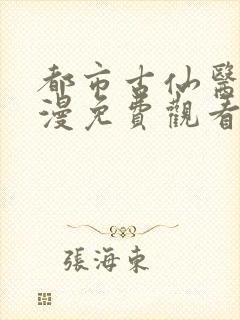 都市古仙醫
漫免費觀看
張海東